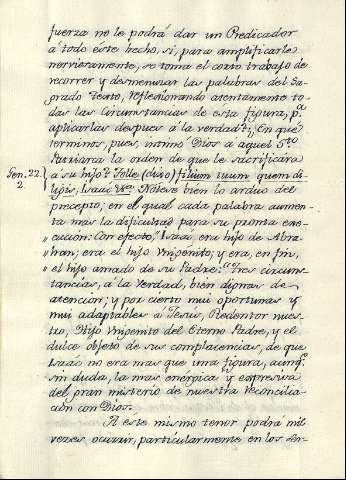 fuerza no le podrá dar un Predicador
á todo este hecho, si, para amplificarle
nerviosamente, se toma el corto trabajo de
recorrer y desmenuzar las palabras del Sa-
grado Texto, reflexionando atentamente to-
das las circunstancias de esta figura, p.a
aplicarlas despues á la verdad? ¿En que
terminos, pues, intimó Dios a aquel S.to
Patriarca la orden de que le sacrificara
Gen. 22. 2.
á su hijo? Tolle (dixo) filium tuum quem di-
ligis, Isaac &c. Nótese bien lo arduo del
precepto; en el qual cada palabra aumen-
ta mas la dificultad para su pronta exe-
cucion: Con efecto, "Isaac, era hijo de Abra-
"han; era el hijo Unigenito; y era, en fin,
"el hijo amado de su Padre." Tres circuns-
tancias, á la verdad, bien dignas de
atencion; y por cierto mui oportunas y
mui adaptables á Jesus, Redentor nues-
tro, Hijo Unigenito del Eterno Padre, y el
dulce objeto de sus complacencias, de que
Isaác no era mas que una figura, aunq.e
sin duda, la mas energica y expresiva
del gran misterio de nuestra reconcilia-
cion con Dios.
A este mismo tenor podrá mil
vezes ocurrir, particularmente en los Ser-